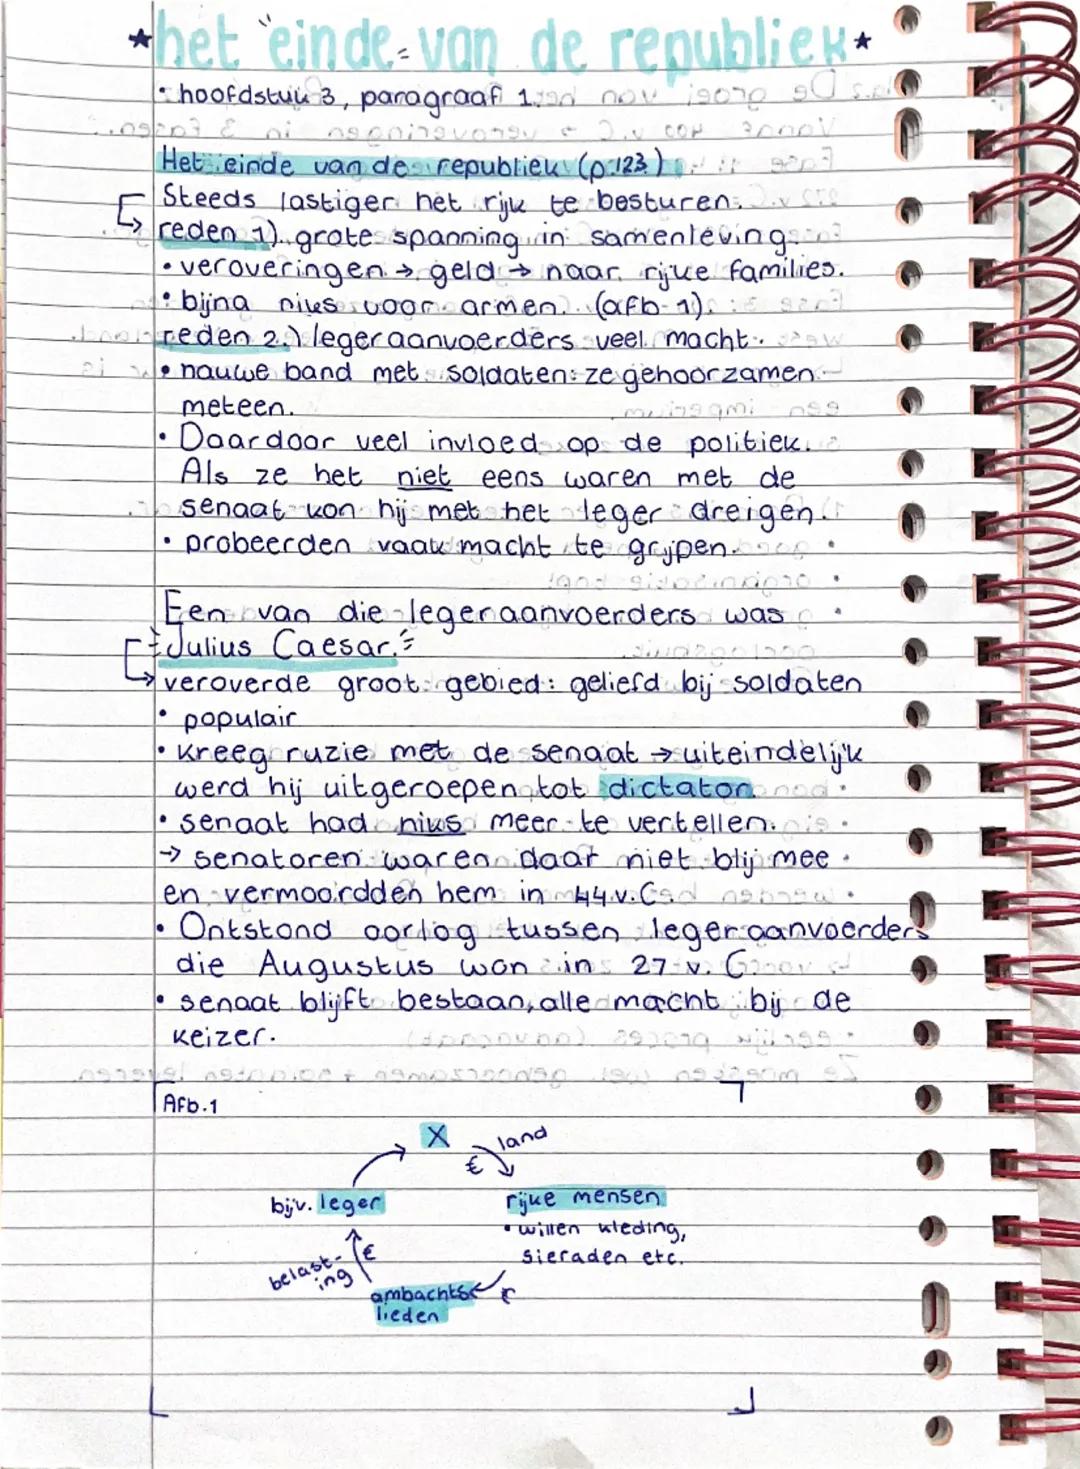 het "einde van de republiek
• hoofdstuk 3, paragraaf 1.
Het einde van de republiek (p.123)
Steeds lastiger het rijk te besturen.
reden 1) grote spanning in samenleving.
• veroveringen → geld → naar rijke families.
• bijna niks voor armen. (afb. 1).
reden 2.) legeraanvoerders veel macht.
• nauwe band met soldaten: ze gehoorzamen
meteen.
• Daardoor veel invloed op de politiek.
Als ze het niet eens waren met de
senaat kon hij met het leger dreigen.
• probeerden vaak macht te grijpen.
Een van die legeraanvoerders was
Julius Caesar.
veroverde groot gebied: geliefd bij soldaten
• populair
• kreeg ruzie met de senaat → uiteindelijk
werd hij uitgeroepen tot dictator.
• senaat had niks meer te vertellen.
→ senatoren waren daar niet blij mee
en vermoordden hem in 44 v.C.
• Ontstond oorlog tussen legeraanvoerders
die Augustus won in 27 v. C
• senaat blijft bestaan, alle macht bij de
keizer.
Afb.1
X
land
€
bijv. leger
rijke mensen
• willen kleding,
sieraden etc.
€
belast-
ing
ambachts
lieden
€